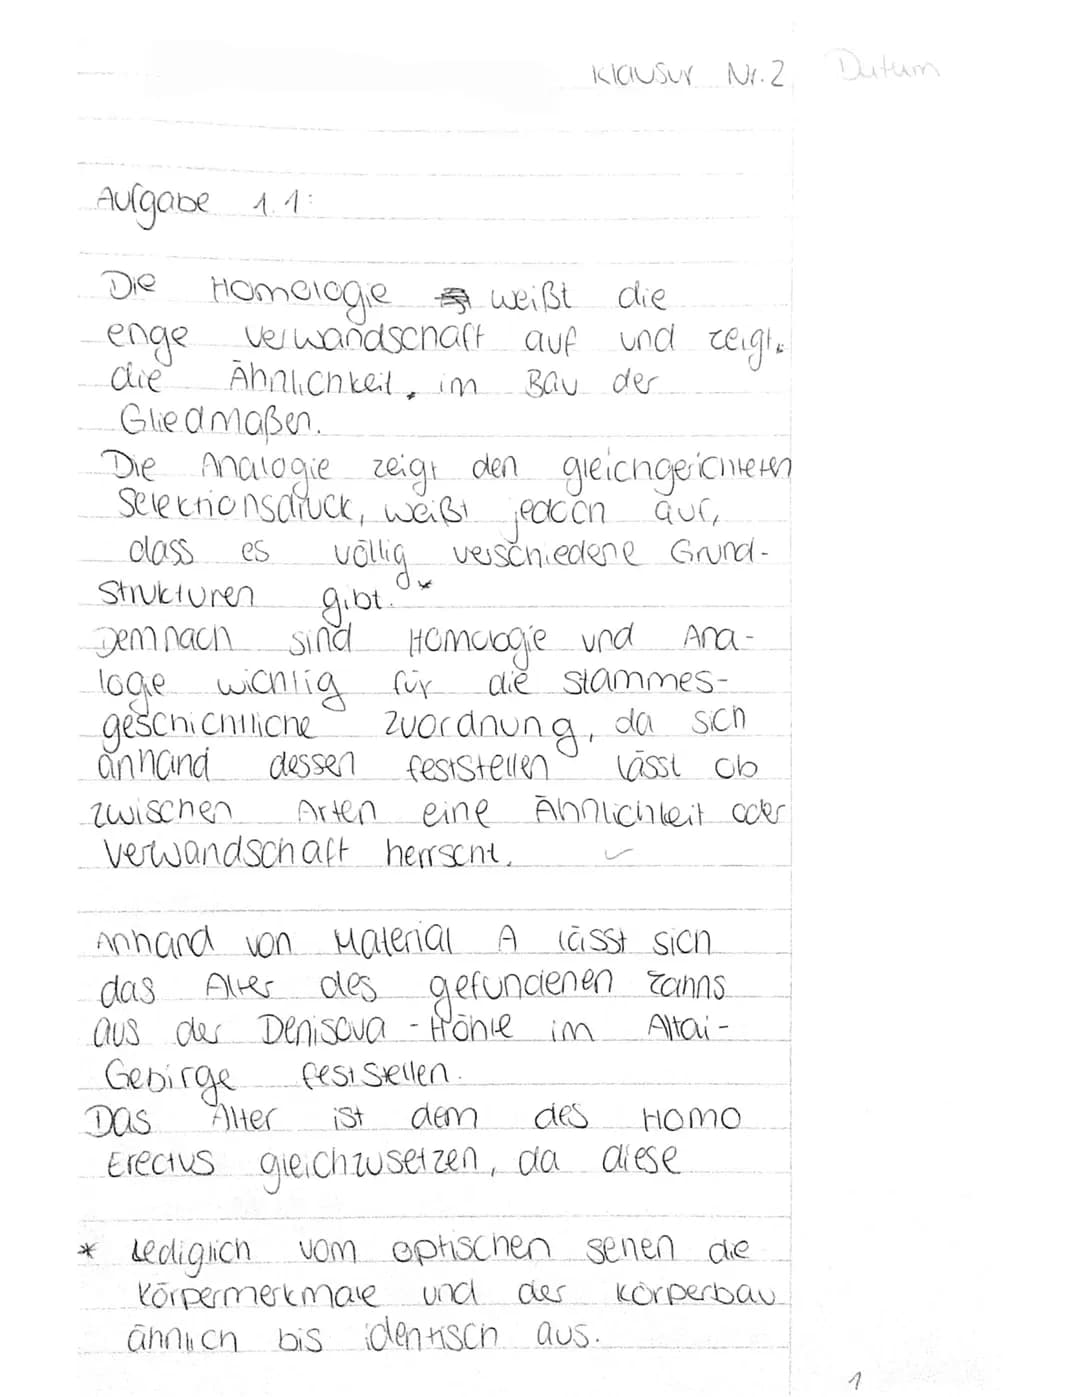 Klausur Nr. 2 Datum
Aufgabe 1.1:
Die Homologie weißt die
enge Verwandschaft auf und zeigt
die Ähnlichkeit, im Bau der
Gliedmaßen.
Die Analogie zeigt den gleichgerichteten
Selektionsdruck, weißt jedoch auf,
dass es völlig verschiedene Grund-
strukturen gibt.*
Demnach sind Homologie und Ana-
logie wichtig für die stammes-
geschichtliche Zuordnung, da sich
anhand dessen feststellen lässt ob
zwischen Arten eine Ähnlichkeit oder
Verwandschaft herrscht.
Anhand von Material A lässt sich
das Alter des gefundenen Zahns
aus der Denisova-Höhle im Altai-
Gebirge feststellen.
Das Alter ist dem des Homo
Erectus gleichzusetzen, da diese
* Lediglich vom optischen sehen die
Körpermerkmale und der Körperbau
ähnlich bis identisch aus.
1